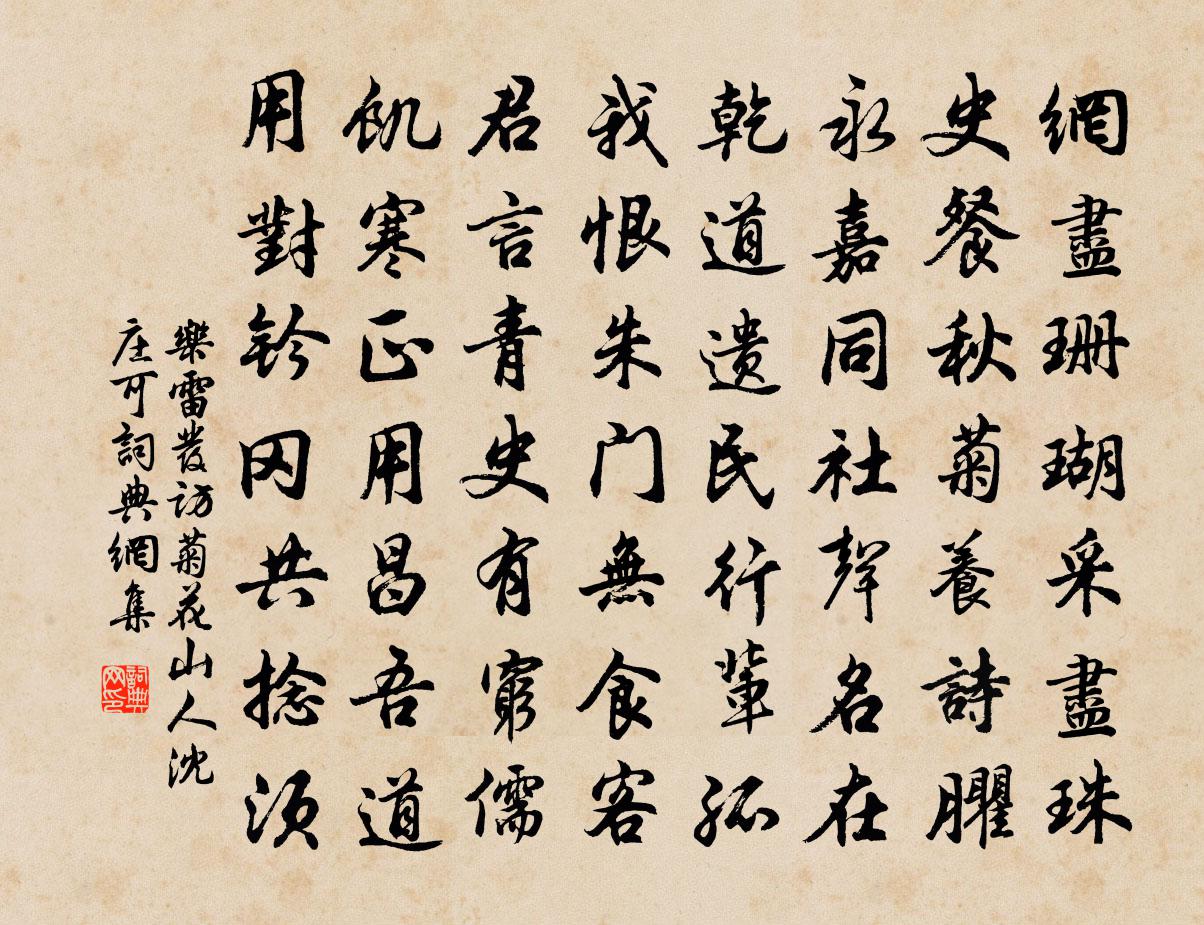 網盡珊瑚采盡珠
史餐秋菊養詩臞
永嘉同社聲名在
乾道遗民行輩孤
我恨朱门無食客
君言青史有窮儒
飢寒正用昌吾道
用對鈐冈共捻须
樂雷發访菊花山人沈
庄可詞典網集
詞典网印